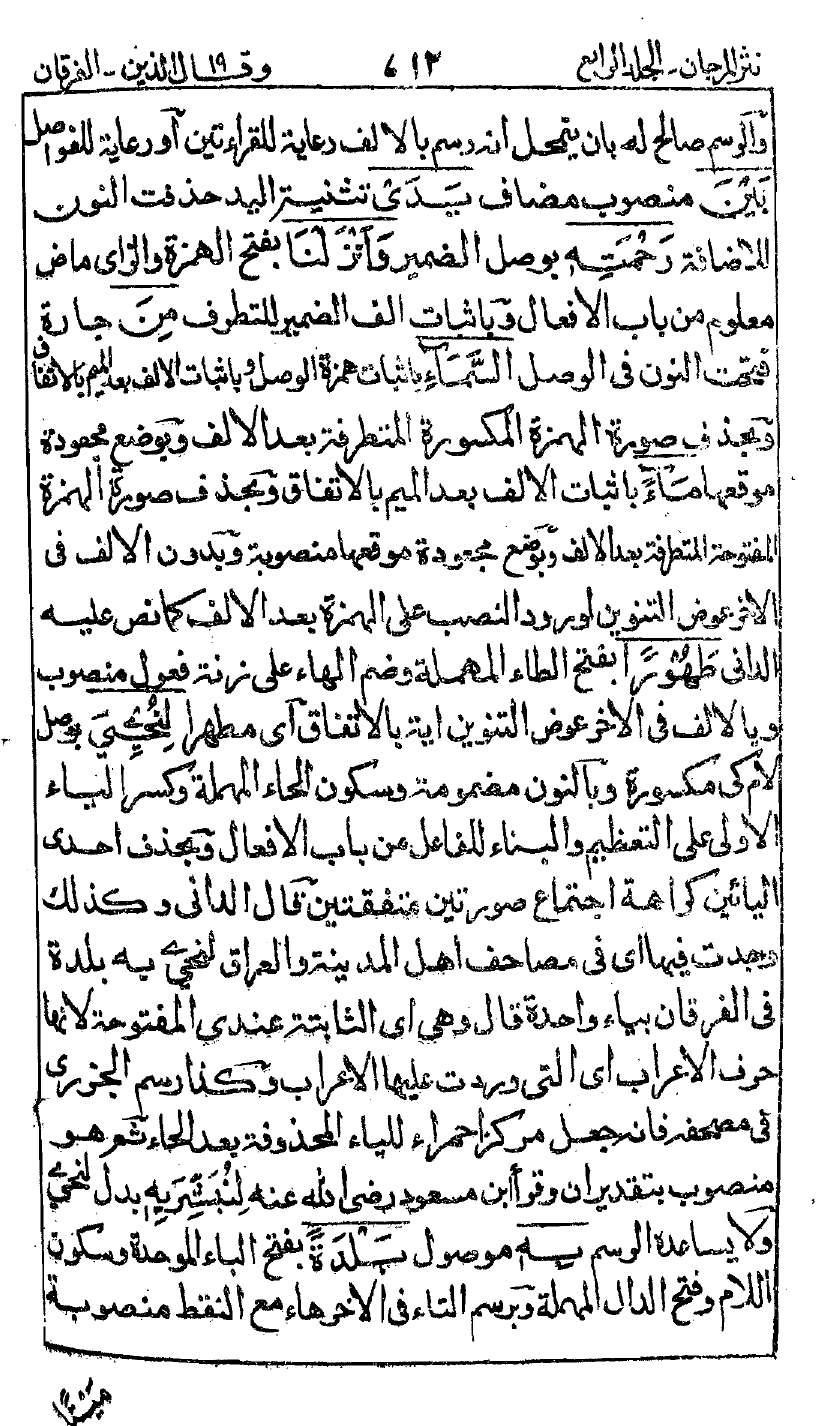 نثر المرجان - الجلد الرابع ٦١٢ وقال الذين ١٩ - الفرقان
والرسم صالح له بان يتمحل انه رسم بالالف رعاية للقراءتين أو رعاية للفواصل
بَيْنَ منصوب مضاف يَدَىْ تثنية اليد حذفت النون
للاضافة رَحْمَتِهٖ بوصل الضمير وَأَنْزَلْنَا بفتح الهمزة والزاى ماض
معلوم من باب الافعال وباثبات الف الضمير للتطرف مِنَ جارة
فتحت النون فى الوصل السَّمَآءِ باثبات همزة الوصل وباثبات الالف بعد الميم بالاتفاق
وبحذف صورة الهمزة المكسورة المتطرفة بعد الالف وبوضع مجعودة
موقعها مَآءً باثبات الالف بعد الميم بالاتفاق وبحذف صورة الهمزة
المفتوحة المتطرفة بعد الالف وبوضع مجعودة موقعها منصوبة وبدون الالف فى
الاخر عوض التنوين لورود النصب على الهمزة بعد الالف كما نص عليه
الدانى طَهُوْرًا بفتح الطاء المهملة وضم الهاء على زنة فعول منصوب
وبالالف فى الاخر عوض التنوين اية بالاتفاق أى مطهرا لِنُحْيِۦَ بوصل
لام كى مكسورة وبالنون مضمومة وسكون الحاء المهملة وكسر الياء
الاولى على التعظيم والبناء للفاعل من باب الافعال وبحذف احدى
اليائين كراهة اجتماع صورتين متفقتين قال الدانى وكذلك
وجدت فيها اى فى مصاحف اهل المدينة والعراق لنحيے به بلدة
فى الفرقان بياء واحدة قال وهى اى الثابتة عندى المفتوحة لانها
حرف الاعراب اى التى وردت عليها الاعراب وكذا رسم الجزرى
فى مصحفه فانه جعل مركزا حمراء للياء المحذوفة بعد الحاء ثم هو
منصوب بتقدير ان وقرأ ابن مسعود رضى الله عنه لِنُبَشِّرَ بِهٖ بدل لنحيے
ولا يساعدة الرسم بِهٖ موصول بَلْدَةً بفتح الباء الموحدة وسكون
اللام وفتح الدال المهملة وبرسم التاء فى الاخر هاء مع النقط منصوبة
مَيْتًا